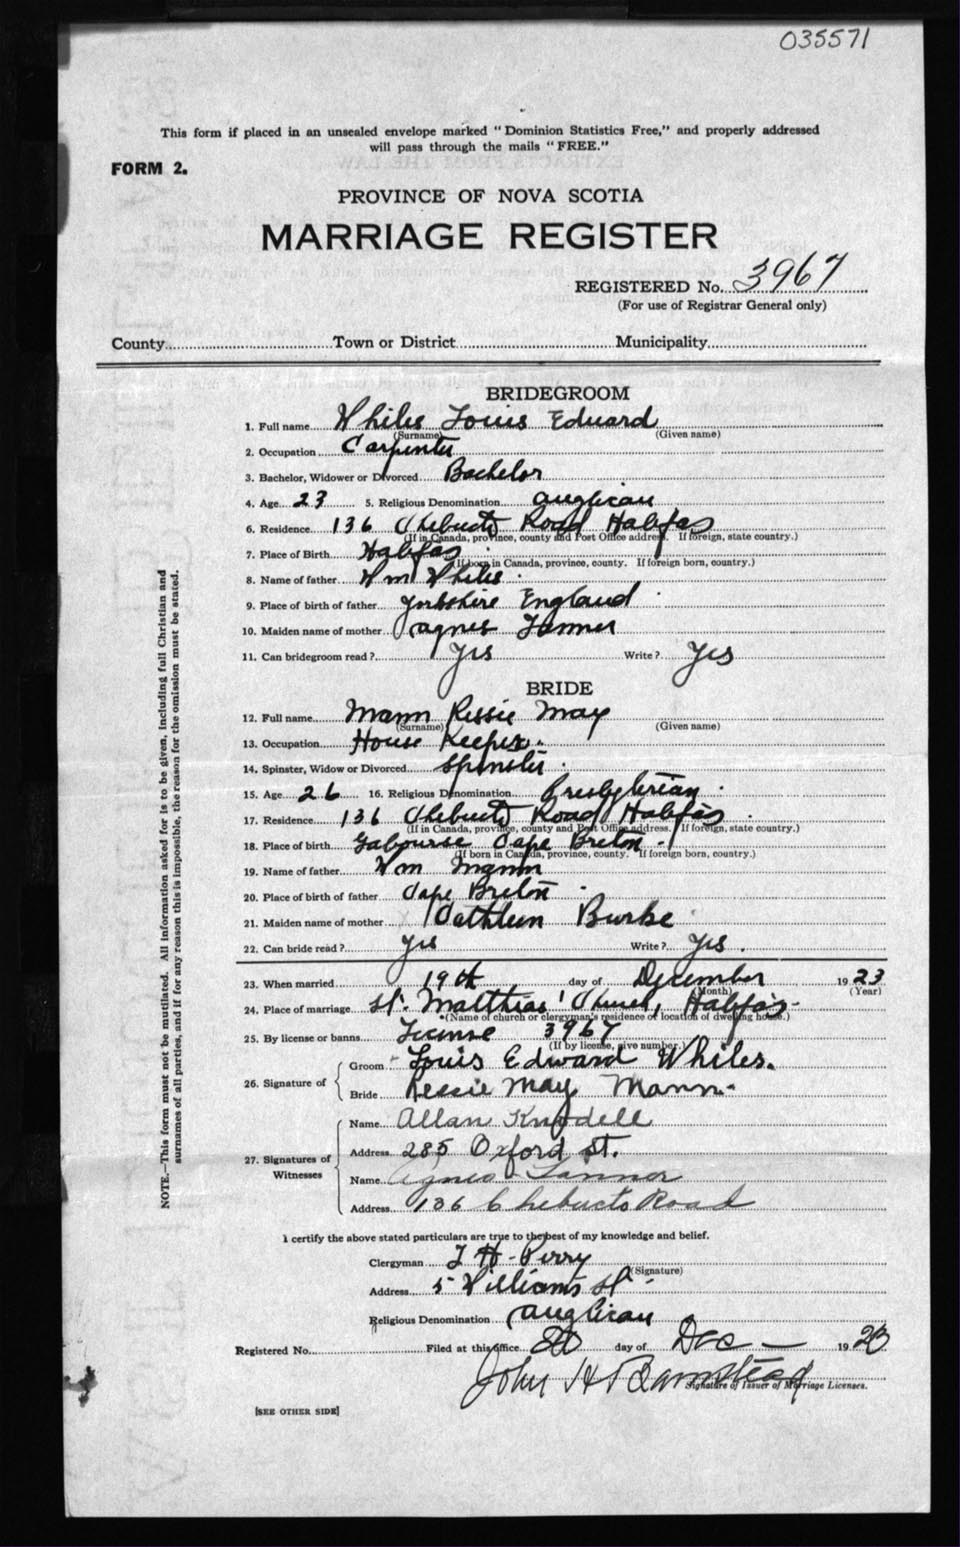 035571
This form if placed in an unsealed envelope marked "Dominion Statistics Free," and properly addressed
will pass through the mails "FREE."
FORM 2.
PROVINCE OF NOVA SCOTIA
MARRIAGE REGISTER
REGISTERED No. 3967
(For use of Registrar General only)
County Town or District Municipality
BRIDEGROOM
1. Full name Whiles Louis Edward
(Surname) (Given name)
2. Occupation Carpenter
3. Bachelor, Widower or Divorced Bachelor
4. Age 23 5. Religious Denomination Anglican
6. Residence 136 Chebucto Road Halifax
(If in Canada, province, county and Post Office address. If foreign, state country.)
7. Place of Birth Halifax
(If born in Canada, province, county. If foreign born, country.)
8. Name of father Wm Whiles
9. Place of birth of father Yorkshire England
10. Maiden name of mother Agnes Tanner
11. Can bridegroom read? Yes Write? Yes
BRIDE
12. Full name Mann Ressie May
(Surname) (Given name)
13. Occupation House Keeper
14. Spinster, Widow or Divorced Spinster
15. Age 26 16. Religious Denomination Presbyterian
17. Residence 136 Chebucto Road Halifax
(If in Canada, province, county and Post Office address. If foreign, state country.)
18. Place of birth Gabourse Cape Breton
(If born in Canada, province, county. If foreign born, country.)
19. Name of father Wm Mann
20. Place of birth of father Cape Breton
21. Maiden name of mother Cathleen Burke
22. Can bride read? Yes Write? Yes.
23. When married 19th day of December 1923
(Month) (Year)
24. Place of marriage St. Matthias' Church, Halifax
(Name of church or clergyman's residence or location of dwelling house.)
25. By license or banns License 3967
(If by license, give number.)
26. Signature of
Groom Louis Edward Whiles.
Bride Ressie May Mann
27. Signatures of Witnesses
Name Allan Knodell
Address 285 Oxford St.
Name Agnes Tannor
Address 136 Chebucto Road
I certify the above stated particulars are true to the best of my knowledge and belief.
Clergyman T H Perry
(Signature)
Address 5 Williams St
Religious Denomination Anglican
Registered No. Filed at this office 20 day of Dec 1923
John H Barnstead
Signature of Issuer of Marriage Licenses.
[SEE OTHER SIDE]
NOTE.—This form must not be mutilated. All information asked for is to be given, including full Christian and
surnames of all parties, and if for any reason this is impossible, the reason for the omission must be stated.